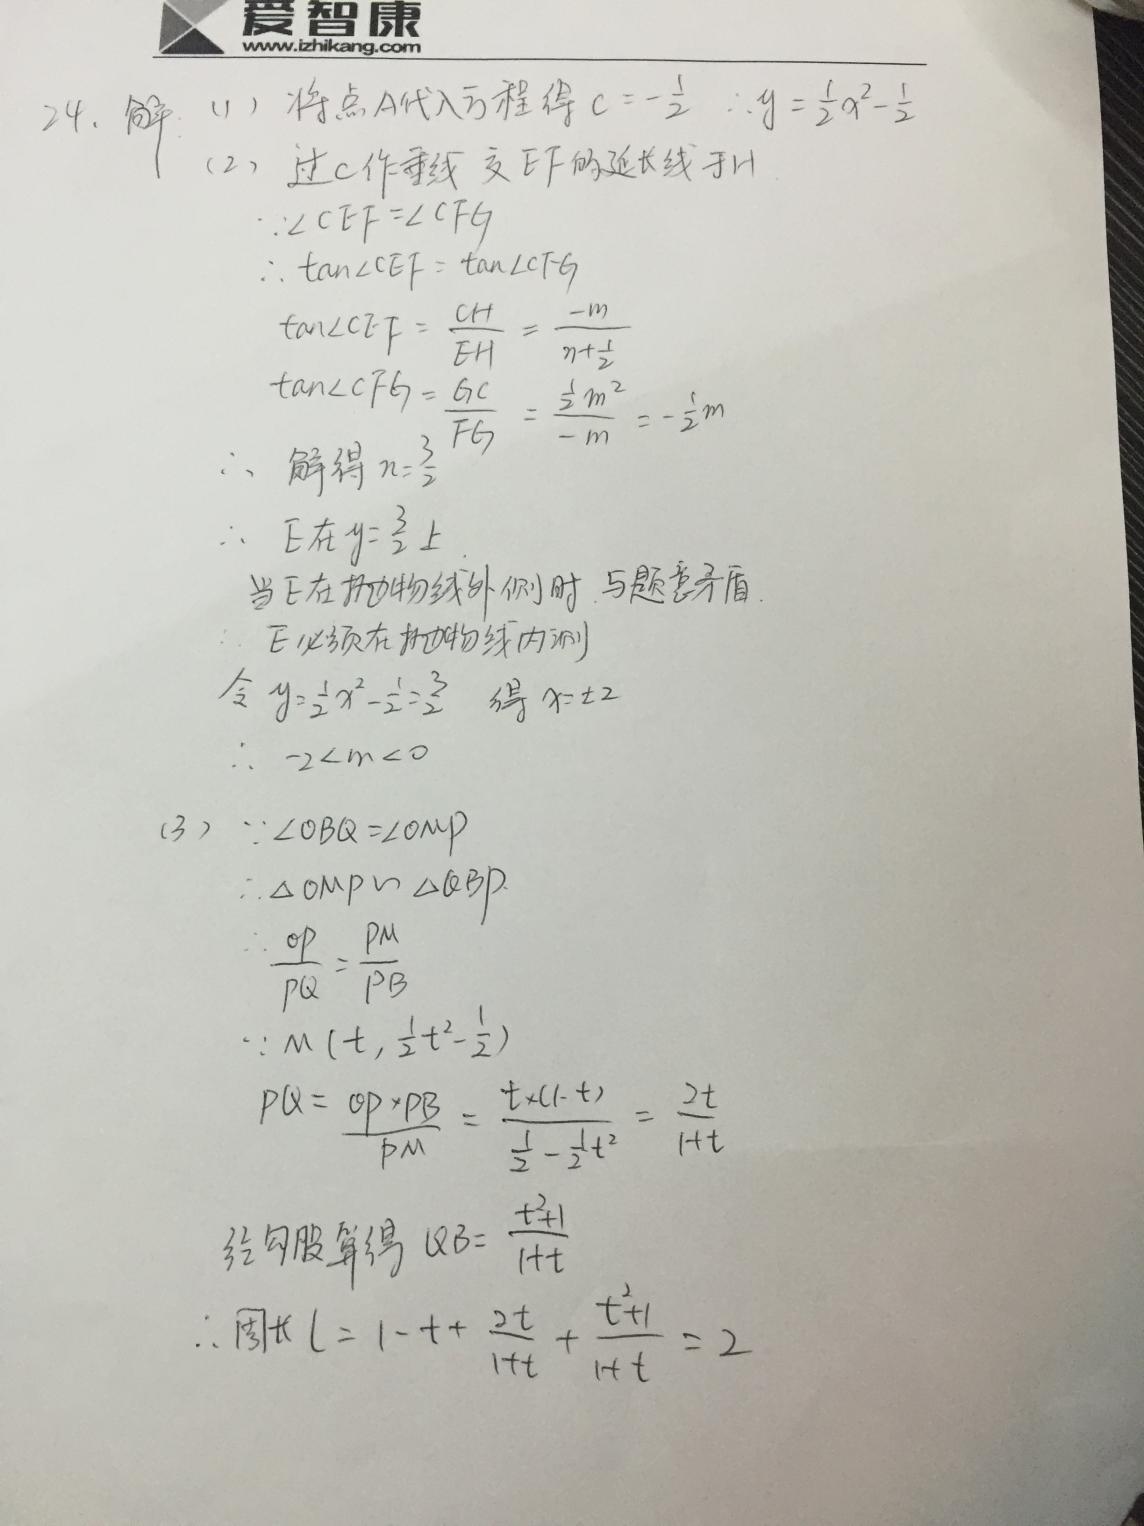 爱智康
www.izhikang.com
24、解:(1) 将点A代入方程得 c=-1/2 ∴y=1/2x²-1/2
(2) 过C作垂线 交EF的延长线于H.
∵∠CEF=∠CFG
∴tan∠CEF=tan∠CFG
tan∠CEF=CH/EH=-m/(n+1/2)
tan∠CFG=GC/FG=(1/2m²)/(-m)=-1/2m
∴ 解得 n=3/2
∴ E在y=3/2上.
当E在抛物线外侧时 与题意矛盾.
∴ E必须在抛物线内测
令 y=1/2x²-1/2=3/2 得 x=±2
∴ -2<m<0
(3) ∵∠OBQ=∠OMP
∴△OMP∽△QBP.
∴ OP/PQ=PM/PB
∵M(t,1/2t²-1/2)
PQ=(OP×PB)/PM=(t×(1-t))/(1/2-1/2t²)=2t/(1+t)
由勾股算得 QB=(t²+1)/(1+t)
∴周长 l=1-t+2t/(1+t)+(t²+1)/(1+t)=2